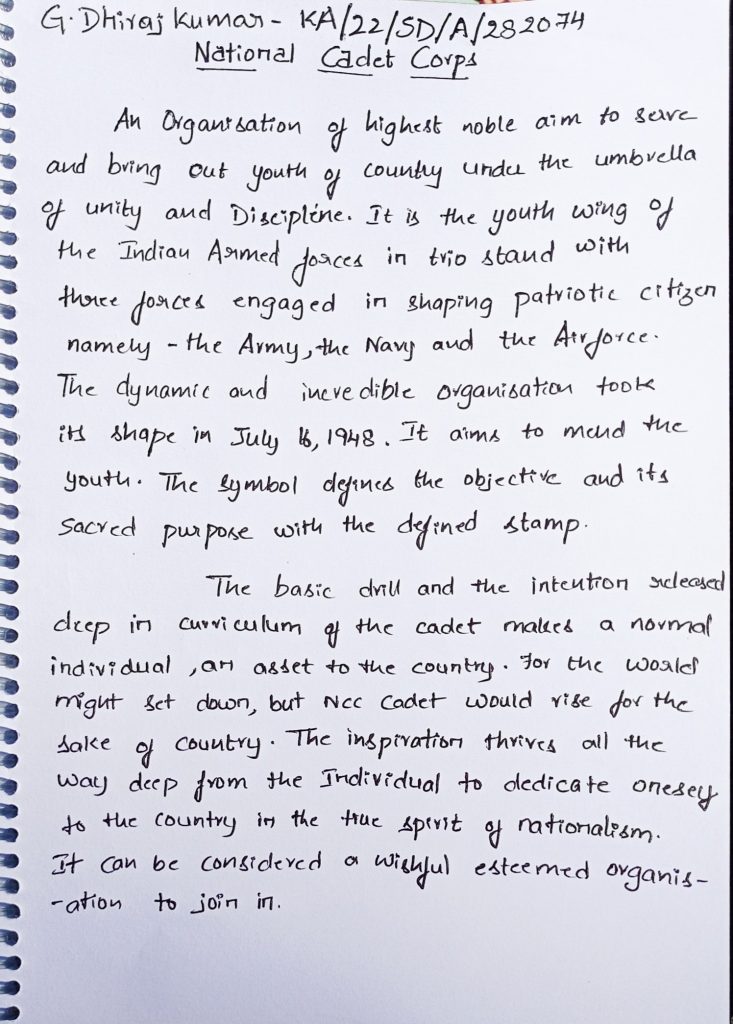 G. Dhiraj Kumar - KA/22/SD/A/282074
National Cadet Corps
An Organisation of highest noble aim to serve
and bring out youth of country under the umbrella
of unity and Discipline. It is the youth wing of
the Indian Armed forces in trio stand with
three forces engaged in shaping patriotic citizen
namely - the Army, the Navy and the Airforce.
The dynamic and incredible organisation took
its shape in July 16, 1948. It aims to mend the
youth. The symbol defines the objective and its
sacred purpose with the defined stamp.
The basic drill and the intention released
deep in curriculum of the cadet makes a normal
individual, an asset to the country. For the world
might set down, but Ncc Cadet would rise for the
sake of country. The inspiration thrives all the
way deep from the Individual to dedicate oneself
to the country in the true spirit of nationalism.
It can be considered a wishful esteemed organis-
-ation to join in.